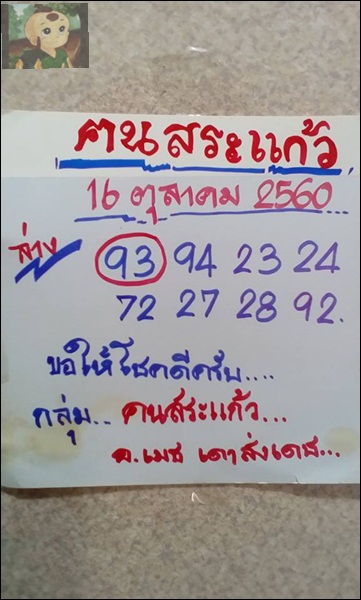 คนสระแก้ว
16 ตุลาคม 2560
ล่าง 93 94 23 24
72 27 28 92.
ขอให้โชคดีครับ....
กลุ่ม.. คนสระแก้ว...
อ.เมธ เดาส่งเดช...